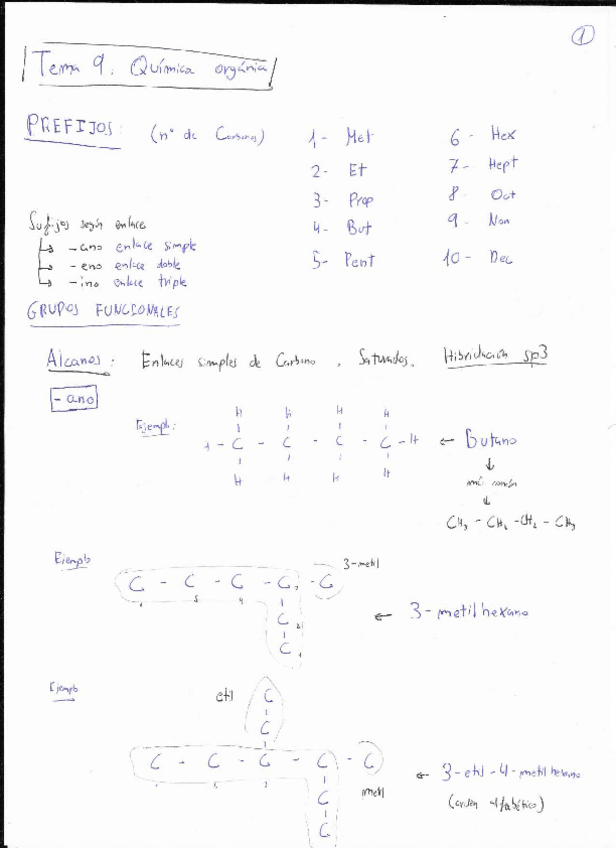 1
Tema 9. Química orgánica
PREFIJOS: (nº de Carbonos)
1- Met
2- Et
3- Prop
4- But
5- Pent
6- Hex
7- Hept
8- Oct
9- Non
10- Dec
Sufijos según enlace
↳ -ano enlace simple
↳ -eno enlace doble
↳ -ino enlace triple
GRUPOS FUNCIONALES
Alcanos: Enlaces simples de Carbono, Saturados. Hibridación sp3
-ano
Ejemplo:
H H H H
C - C - C - C - H ← Butano
H H H H
más común
CH3 - CH2 - CH2 - CH3
Ejemplo
3-metil
C - C - C - C - C
C
C
← 3-metilhexano
Ejemplo
etil
C
C
C - C - C - C - C
metil
C
C
← 3-etil-4-metilhexano
(orden alfabético)